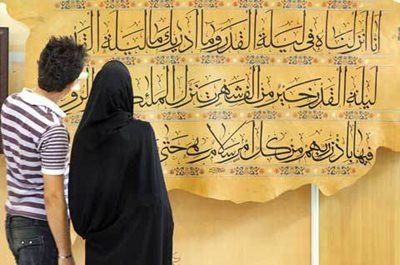 انا انزلناه في ليلة القدر وما ادريك ما ليلة القد
ليلة القدر خير من الف شهر تنزل الملئكة والرو
فيها باذن ربهم من كل امر سلام هي حتى